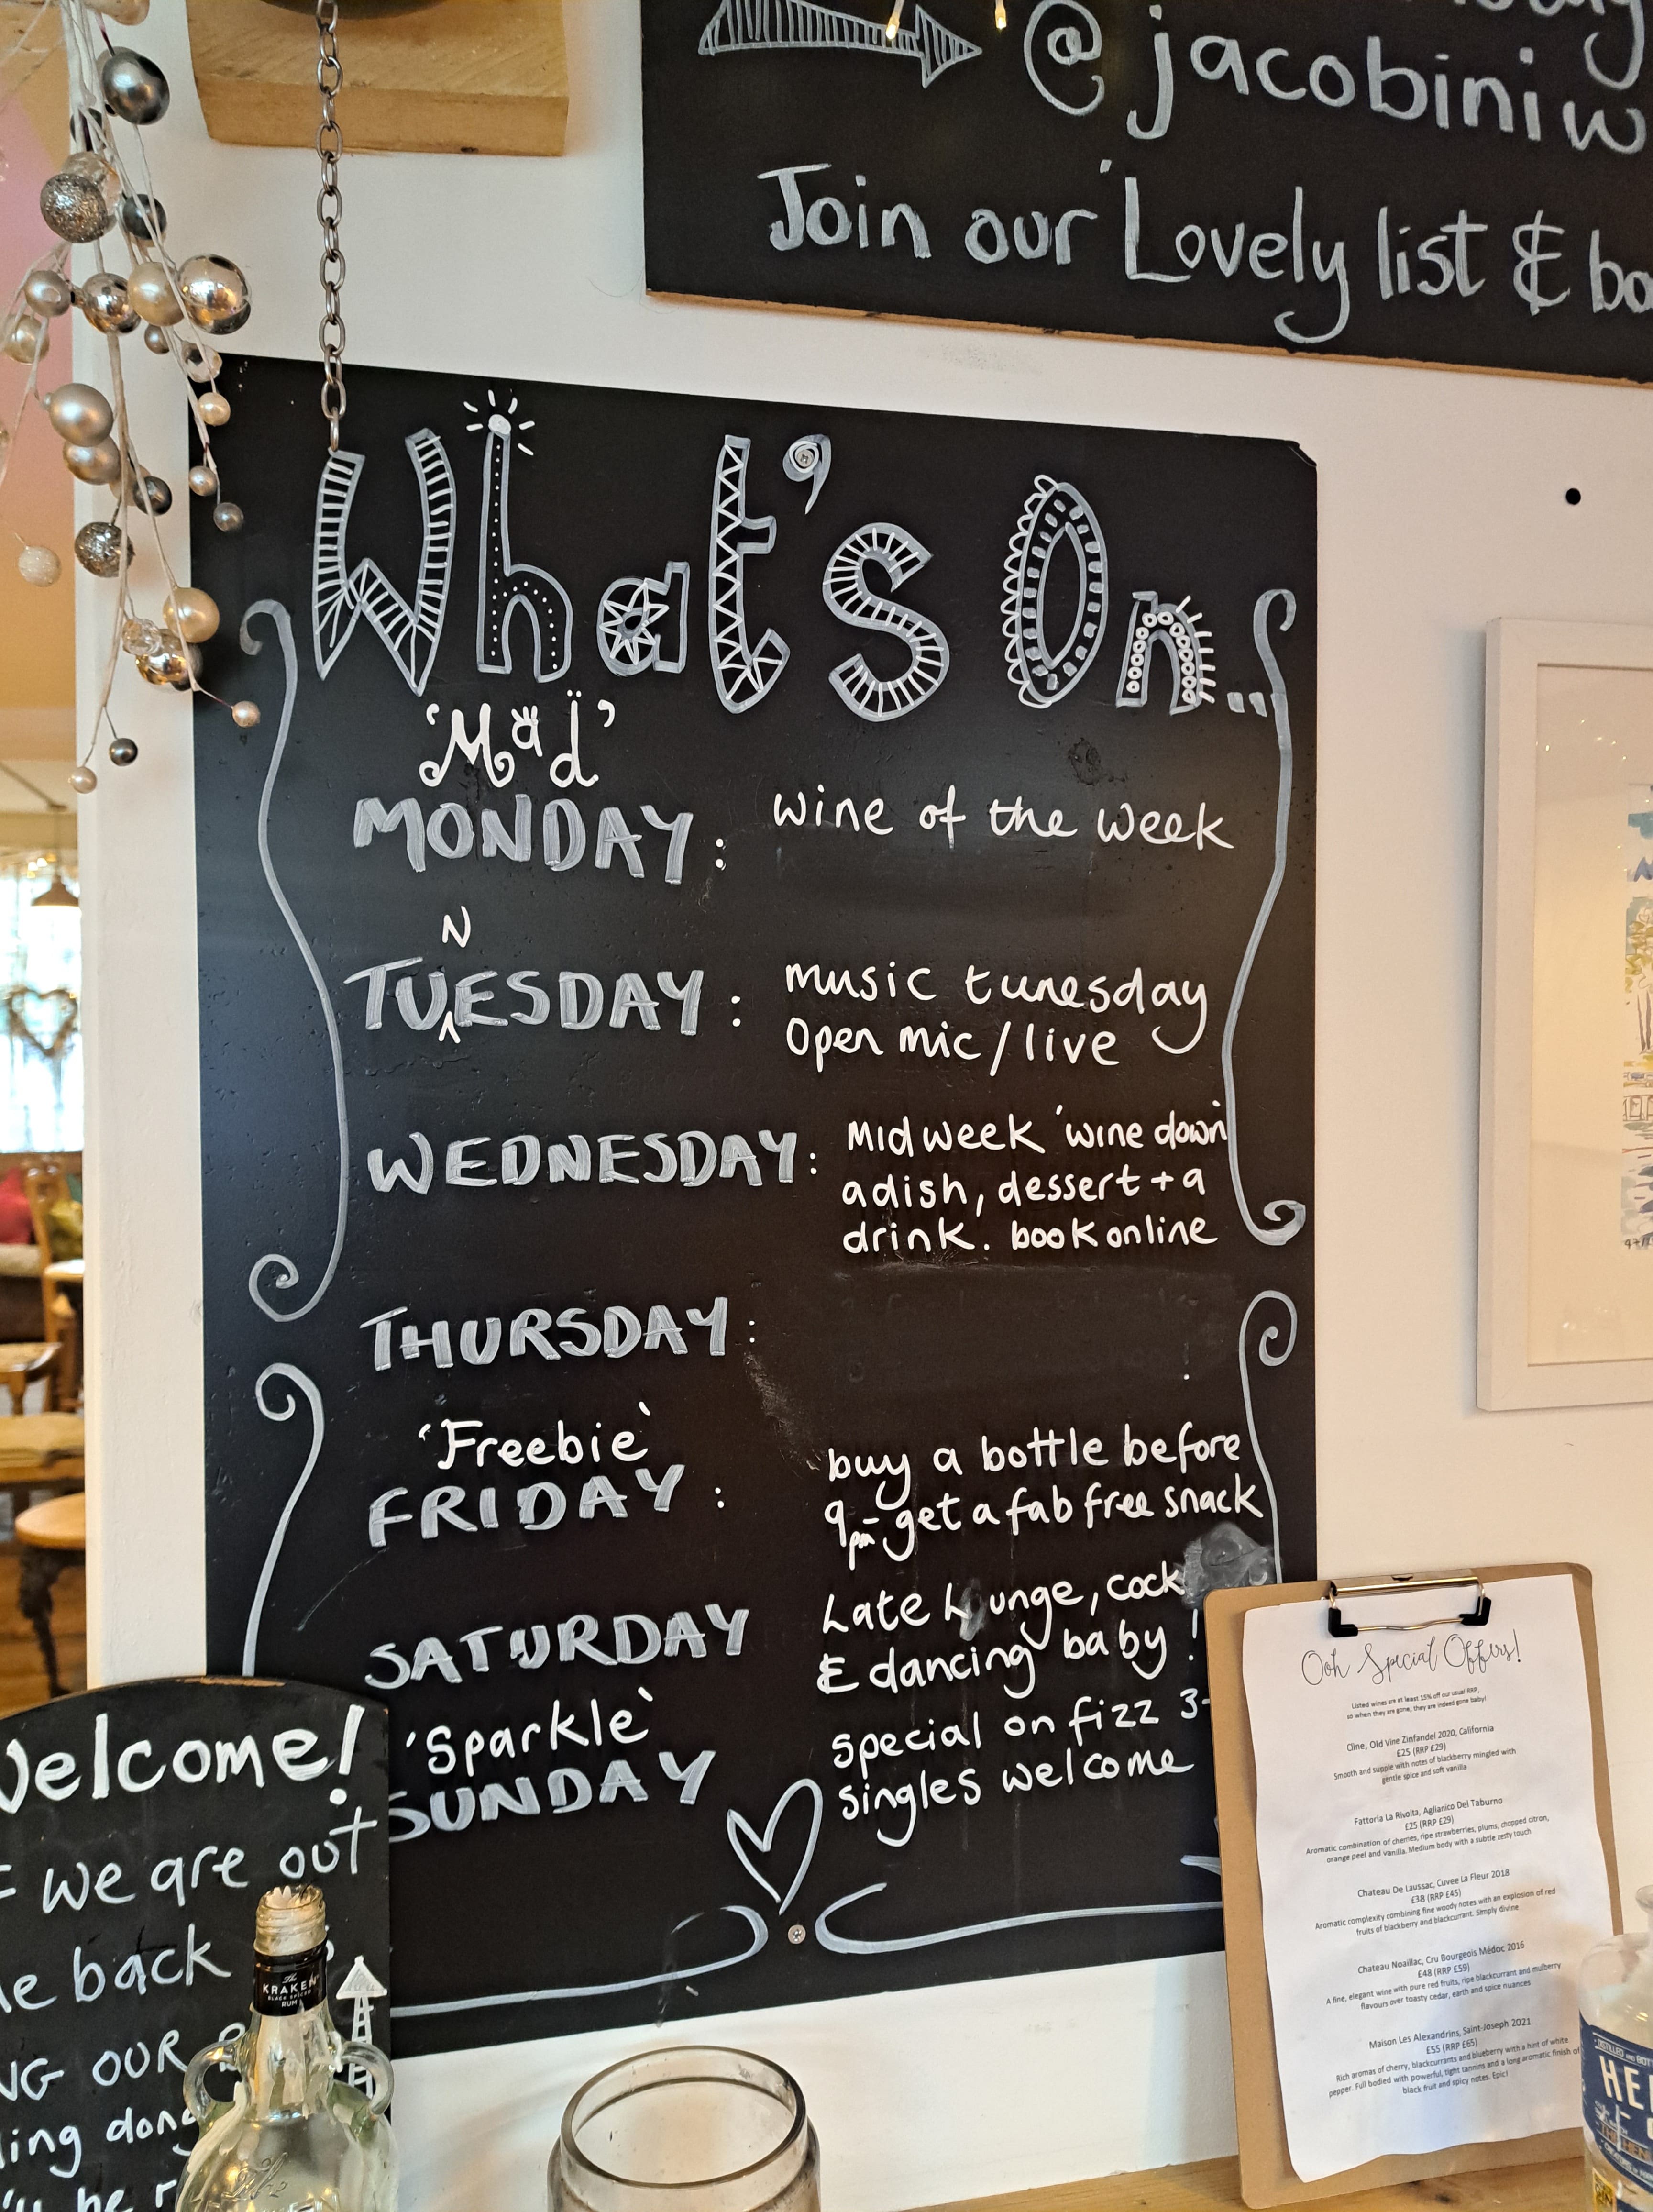 @jacobiniw
Join our 'Lovely list & bo
What's On...
'Mad'
MONDAY: wine of the week
N
TUESDAY: music tunesday
Open mic/live
WEDNESDAY: Midweek 'wine down'
a dish, dessert + a
drink. book online
THURSDAY:
'Freebie'
FRIDAY: buy a bottle before
9pm- get a fab free snack
SATURDAY Late L unge, cock
& dancing baby!
'Sparkle' special on fizz 3-
SUNDAY singles welcome
Welcome!
F we are out
e back
NG OUR B
ling dong
'll be r
The
KRAKEN
BLACK SPICED
RUM
Ooh Special Offers!
Listed wines are at least 15% off our usual RRP,
so when they are gone, they are indeed gone baby!
Cline, Old Vine Zinfandel 2020, California
£25 (RRP £29)
Smooth and supple with notes of blackberry mingled with
gentle spice and soft vanilla
Fattoria La Rivolta, Aglianico Del Taburno
£25 (RRP £29)
Aromatic combination of cherries, ripe strawberries, plums, chopped citron,
orange peel and vanilla. Medium body with a subtle zesty touch
Chateau De Laussac, Cuvee La Fleur 2018
£38 (RRP £45)
Aromatic complexity combining fine woody notes with an explosion of red
fruits of blackberry and blackcurrant. Simply divine
Chateau Noaillac, Cru Bourgeois Médoc 2016
£48 (RRP £59)
A fine, elegant wine with pure red fruits, ripe blackcurrant and mulberry
flavours over toasty cedar, earth and spice nuances
Maison Les Alexandrins, Saint-Joseph 2021
£55 (RRP £65)
Rich aromas of cherry, blackcurrants and blueberry with a hint of white
pepper. Full bodied with powerful, tight tannins and a long aromatic finish of
black fruit and spicy notes. Epic!
DISTILLED AND BOT
HE